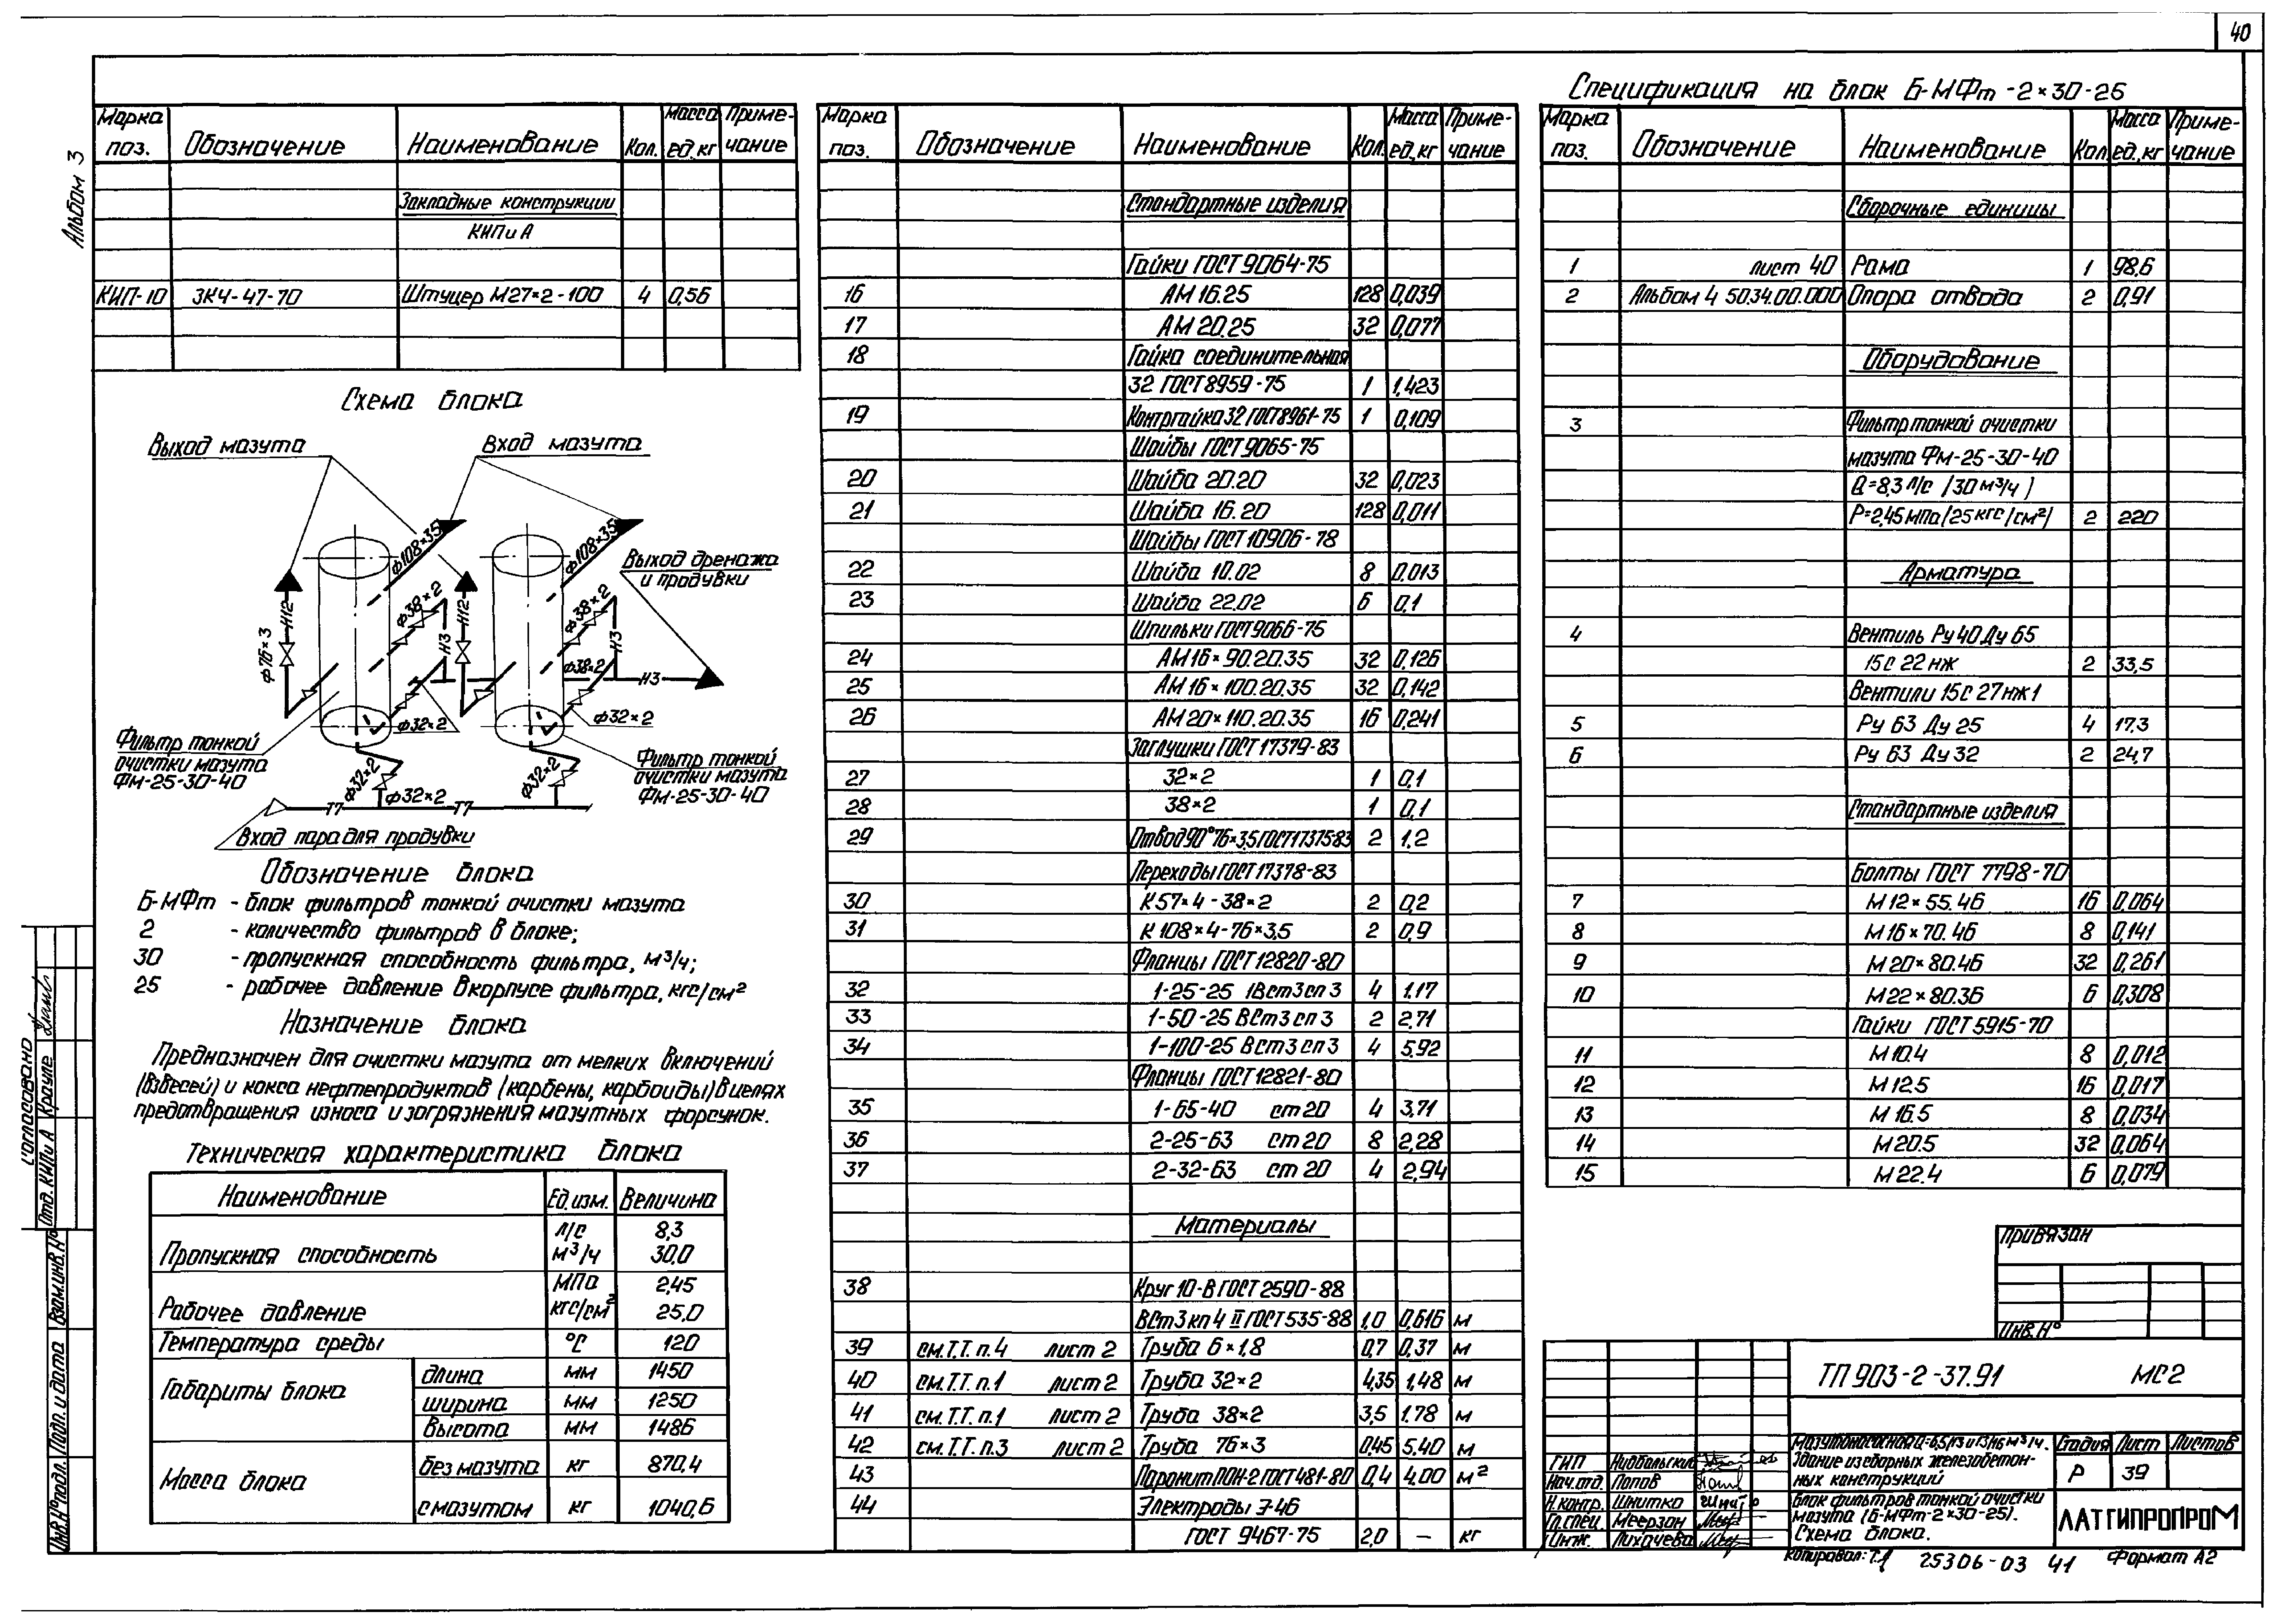 40
Альбом 3
Марка поз. Обозначение Наименование Кол. Масса ед. кг Приме-чание
Закладные конструкции
КИПиА
КИП-10 ЗК4-47-70 Штуцер М27×2-100 4 0,56
Схема блока
Выход мазута
Вход мазута
ф108×3,5
ф108×3,5
Выход дренажа
и продувки
ф38×2
ф38×2
Н12
Н12
Н3
Н3
ф76×3
ф38×2
Н3
ф32×2
ф32×2
Фильтр тонкой
очистки мазута
Фм-25-30-40
Фильтр тонкой
очистки мазута
Фм-25-30-40
ф32×2
ф32×2
ф32×2
Т7
Т7
Вход пара для продувки
Обозначение блока
Б-МФт - блок фильтров тонкой очистки мазута
2 - количество фильтров в блоке;
30 - пропускная способность фильтра, м³/ч;
25 - рабочее давление в корпусе фильтра, кгс/см²
Назначение блока
Предназначен для очистки мазута от мелких включений
(взвесей) и кокса нефтепродуктов (карбены, карбоиды) в целях
предотвращения износа и загрязнения мазутных форсунок.
Техническая характеристика блока
Наименование Ед. изм. Величина
л/с 8,3
Пропускная способность м³/ч 30,0
МПа 2,45
Рабочее давление кгс/см² 25,0
Температура среды °С 120
Габариты блока длина мм 1450
ширина мм 1250
высота мм 1486
Масса блока без мазута кг 870,4
с мазутом кг 1040,6
Марка поз. Обозначение Наименование Кол. Масса ед. кг Приме-чание
Стандартные изделия
Гайки ГОСТ 9064-75
16 АМ 16.25 128 0,039
17 АМ 20.25 32 0,077
18 Гайка соединительная
32 ГОСТ 8959-75 1 1,423
19 Контргайка 32 ГОСТ 8961-75 1 0,109
Шайбы ГОСТ 9065-75
20 Шайба 20.20 32 0,023
21 Шайба 16.20 128 0,011
Шайбы ГОСТ 10906-78
22 Шайба 10.02 8 0,013
23 Шайба 22.02 6 0,1
Шпильки ГОСТ 9066-75
24 АМ 16×90.20.35 32 0,126
25 АМ 16×100.20.35 32 0,142
26 АМ 20×110.20.35 16 0,241
Заглушки ГОСТ 17379-83
27 32×2 1 0,1
28 38×2 1 0,1
29 Отвод 90° 76×3,5 ГОСТ 17375-83 2 1,2
Переходы ГОСТ 17378-83
30 К 57×4-38×2 2 0,2
31 К 108×4-76×3,5 2 0,9
Фланцы ГОСТ 12820-80
32 1-25-25 ІВст3сп3 4 1.17
33 1-50-25 ВСт3сп3 2 2.71
34 1-100-25 ВСт3сп3 4 5.92
Фланцы ГОСТ 12821-80
35 1-65-40 ст 20 4 3,71
36 2-25-63 ст 20 8 2,28
37 2-32-63 ст 20 4 2,94
Материалы
38 Круг 10-В ГОСТ 2590-88
ВСт3кп4 II ГОСТ 535-88 1,0 0,616 м
39 см.Т.Т. п.4 лист 2 Труба 6×1,8 0,7 0,37 м
40 см.Т.Т. п.1 лист 2 Труба 32×2 4,35 1,48 м
41 см.Т.Т. п.1 лист 2 Труба 38×2 3,5 1.78 м
42 см.Т.Т. п.3 лист 2 Труба 76×3 0,45 5.40 м
43 Паронит ПОН-2 ГОСТ 481-80 0,4 4.00 м²
44 Электроды Э-46
ГОСТ 9467-75 2,0 — кг
Спецификация на блок Б-МФт-2×30-25
Марка поз. Обозначение Наименование Кол. Масса ед. кг Приме-чание
Сборочные единицы
1 лист 40 Рама 1 98,6
2 Альбом 4 5034.00.000 Опора отвода 2 0,91
Оборудование
3 Фильтр тонкой очистки
мазута Фм-25-30-40
Q=8,3 л/с (30 м³/ч)
Р=2,45 МПа (25 кгс/см²) 2 220
Арматура
4 Вентиль Ру 40 Ду 65
15с 22 нж 2 33,5
Вентили 15с 27нж1
5 Ру 63 Ду 25 4 17.3
6 Ру 63 Ду 32 2 24,7
Стандартные изделия
Болты ГОСТ 7798-70
7 М12×55.46 16 0,064
8 М16×70.46 8 0,141
9 М20×80.46 32 0,261
10 М22×80.36 6 0,308
Гайки ГОСТ 5915-70
11 М10.4 8 0,012
12 М12.5 16 0,017
13 М16.5 8 0,034
14 М20.5 32 0,064
15 М22.4 6 0,079
Привязан
Инв. №
ТП 903-2-37.91 МС2
Здание из сборных железобетон-
ных конструкций
Стадия Лист Листов
Р 39
Блок фильтров тонкой очистки
мазута (Б-МФт-2×30-25).
Схема блока.
ЛАТГИПРОПРОМ
ГИП
Нач.отд. Попов
Н.контр. Шнитко
Гл.спец. Меерзон
Инж. Лихачева
Копировал:
25306-03 41
Формат А2
Согласовано
Отд. КИПиА Крауле
Взам.инв.№
Подп. и дата
Инв.№ подл.